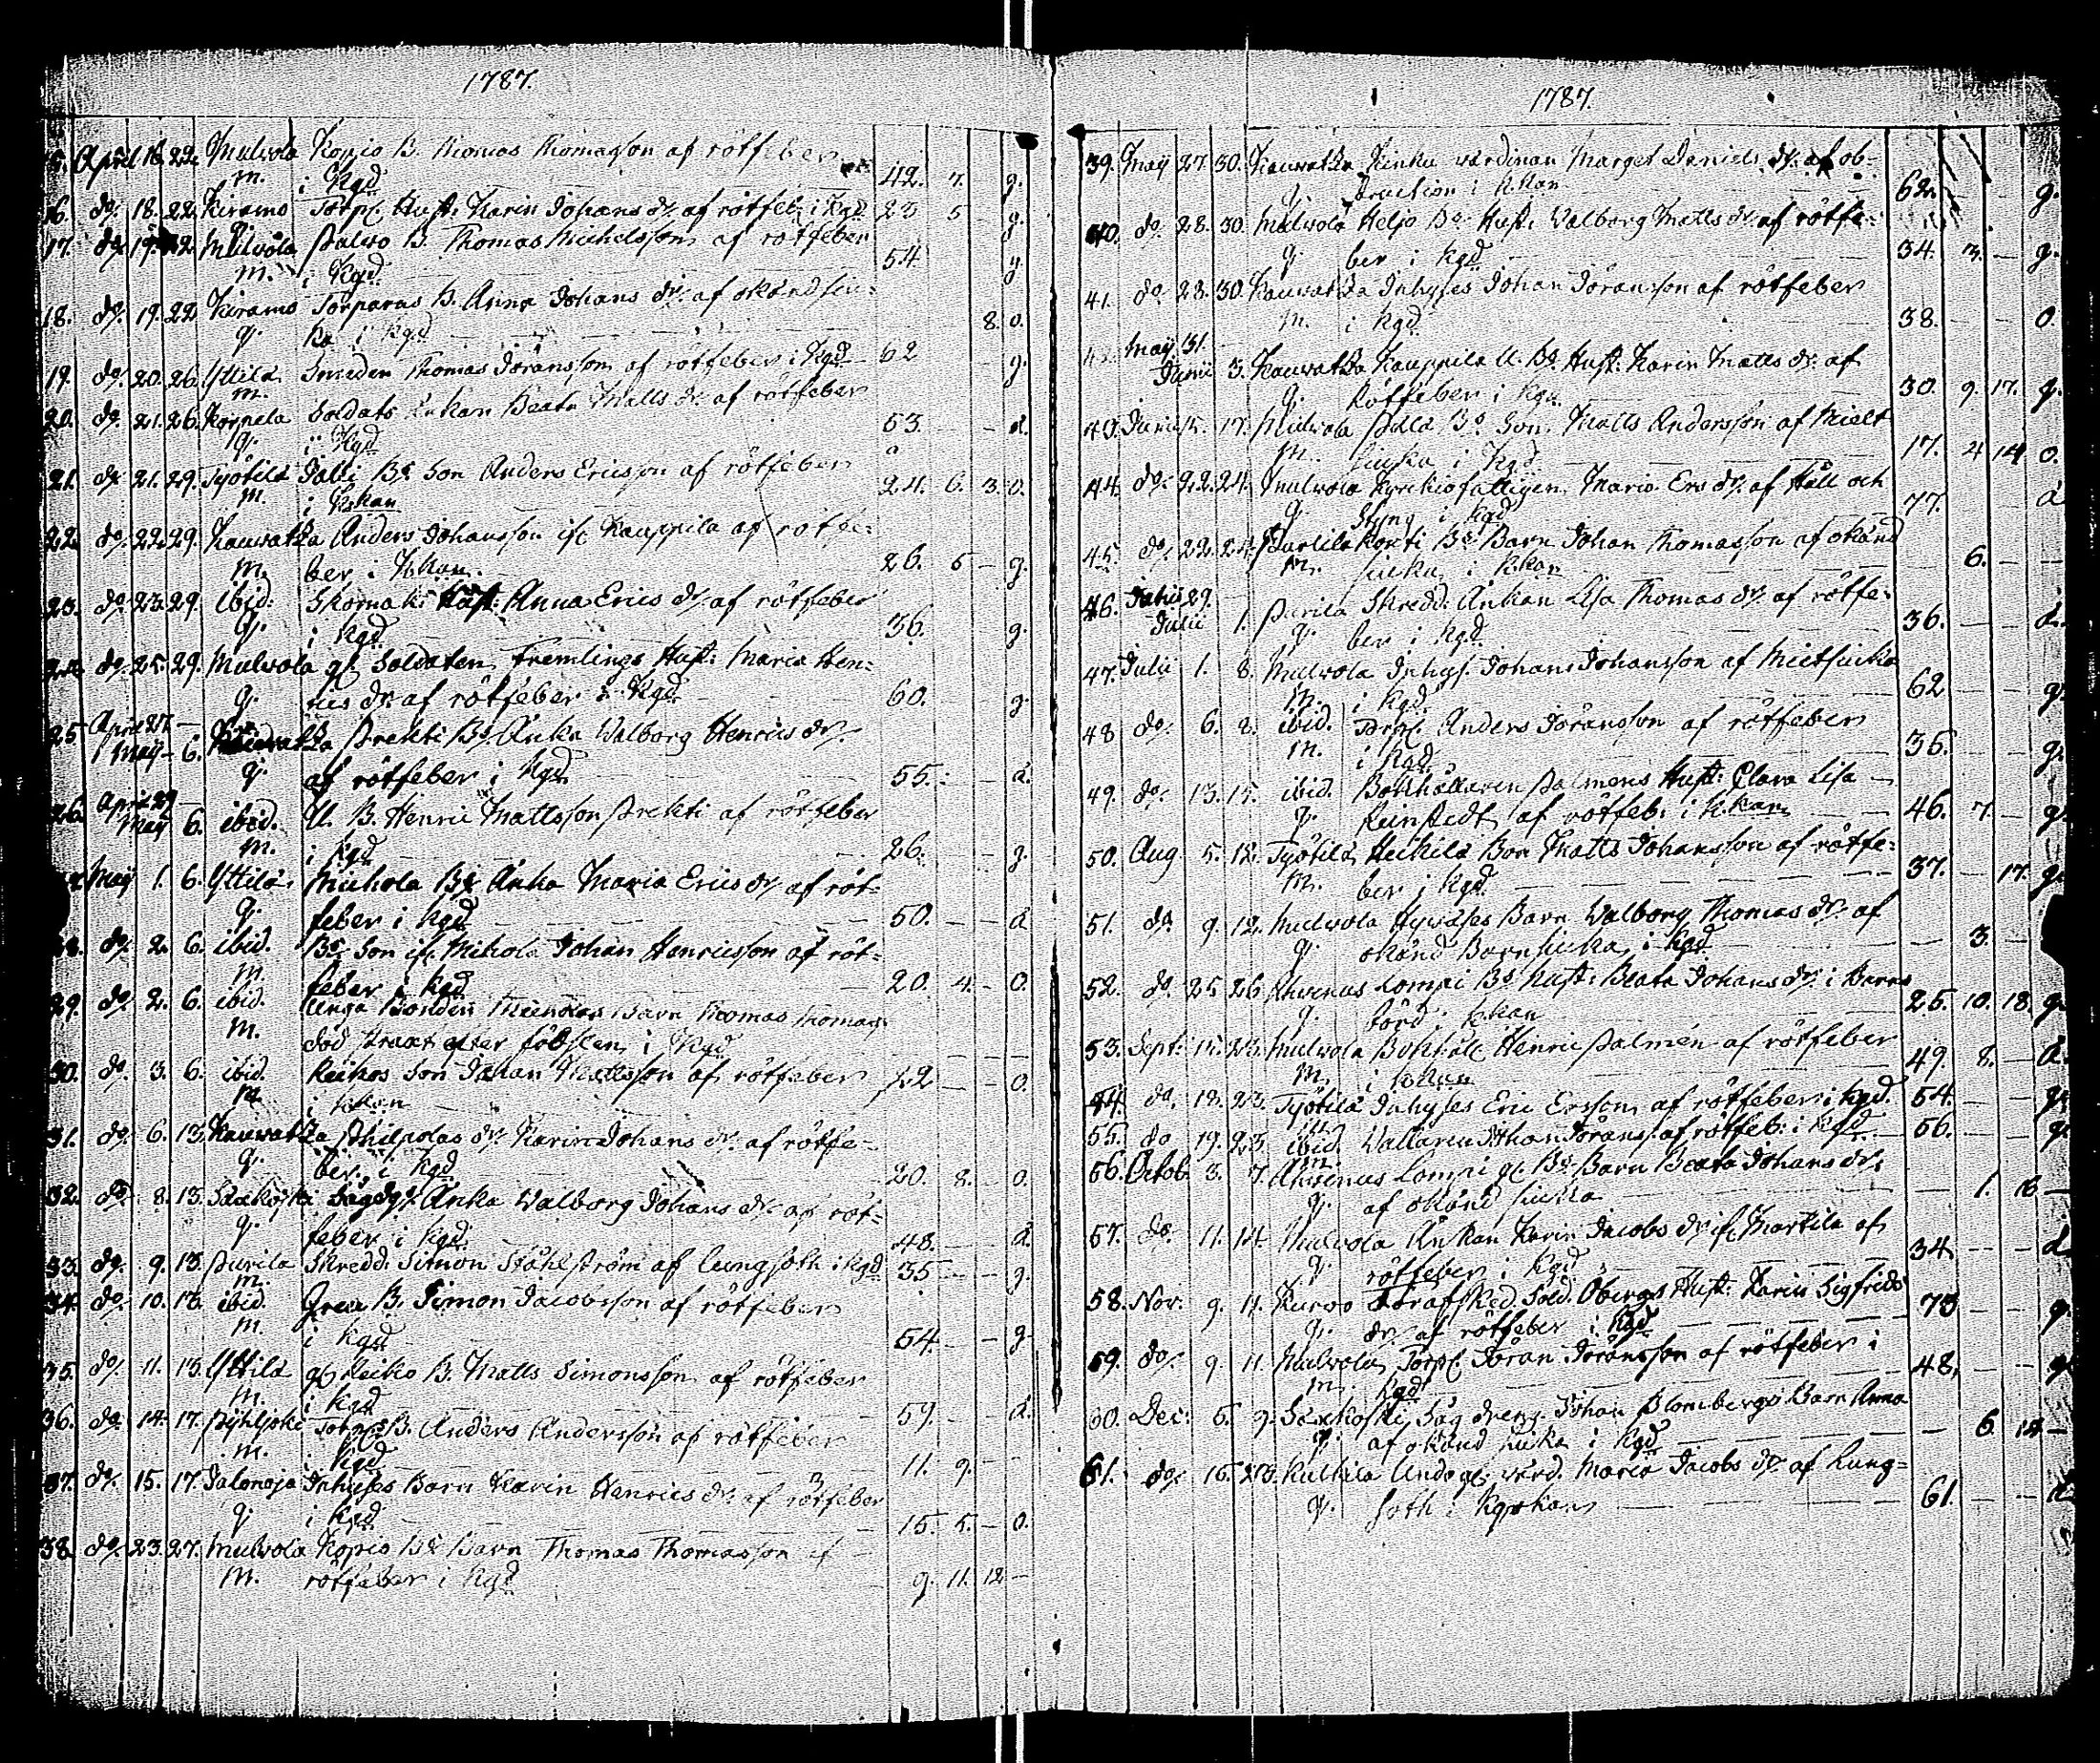 1787.
15. April 16. 22. Mulvola Kopio B. Thomas Thomasson af rötfeber
m. i Kgd 42. 7. g.
16. do. 18. 22. Kiramo Torp. Hust. Karin Johans dr. af rötfeb. i Kgd. 23 5 - g.
17. do. 19. 22. Mulvola B. Thomas Michelsson af rötfeber
m. i Kgd. 54. g.
18. do. 19. 22 Kiramo Torparns B. Anna Johans dr. af okänd siu-
q. ka i Kgd 8. o.
19. do. 20. 26. Yttilä Smeden Thomas Göransson af rötfeber i Kgd. 62 g.
m.
20. do. 21. 26. Korpela Soldats Enkan Beata Matts dr. af rötfeber
q. i Kgd 53. - - ä.
21. do. 21. 29. Työtilä Jalli Bs. Son Anders Ericsson af rötfeber
m. i Kkan 24. 6. 3. o.
22. do. 22. 29. Kauvatsa Anders Johansson if. Kauppila af rötfe-
m. ber i Kkan. 26. 5 - g.
23. do. 23. 29. ibid. Skomak. Hust. Anna Erics dr. af rötfeber
q. i Kgd. 36. g.
24. do. 25. 29. Mulvola gl. Soldaten Fremlings Hust. Maria Hen-
q. rics dr. af rötfeber i Kgd. 60. g.
25. April 27.
Maij 6. Kauvatsa Prekti Bs. Änka Walborg Henrics dr.
q. af rötfeber i Kgd 55. - ä.
26. April 29
Maij 6. ibid. U. B. Henric Mattsson Prekti af rötfeber
m. i Kgd 26. - g.
Maij 1. 6. Yttilä Michola Bs. Änka Maria Erics dr. af röt-
q. feber i Kgd 50. - - ä
28. do. 2. 6. ibid. Bs. Son if. Mikola Johan Henricsson af röt-
m. feber i Kgd 20. 4. - o.
29. do. 2. 6. ibid. Unga Bonden Micholas Barn Thomas Thomass.
m. död straxt efter födslen i Kgd
30. do. 3. 6. ibid. Reikos Son Johan Mattsson af rötfeber 22 - - o.
m. i kkan
31. do. 6. 13. Kauvatsa Philpolas dr. Karin Johans dr. af rötfe-
q. ber i Kgd 20. 8. - o.
32. do. 8. 13. Sääkoski Sågdgs. Änka Walborg Johans dr. af röt-
q. feber i Kgd. 48. - ä.
33. do. 9. 13. Purila Skredd. Simon Ståhlström af lungsoth i Kgd 35 - - g.
m.
34. do. 10. 13. ibid. B. Simon Jacobsson af rötfeber
m. i Kgd 54. - g.
35. do. 11. 13. Yttilä gl. Reiko B. Matts Simonsson af rötfeber
m. i Kgd 59. - - ä.
36. do. 14. 17. Pyhljoki Torps B. Anders Andersson af rötfeber
m. i Kgd 11. 9. -
37. do. 15. 17. Jalonoja Inhyses Barn Karin Henrics dr. af rötfeber
q. i Kgd 15. 5. - o.
38. do. 23. 27. Mulvola Kopio Bs. Barn Thomas Thomasson af
m. rötfeber i Kgd 9. 11. 12 -
1787.
39. Maij 27. 30. Kauvatsa Kinku värdinan Marget Daniels dr. af ob-
q. struction i Kkan 62. g.
40. do. 28. 30. Mulvola Heljo Bs. Hust. Walborg Matts dr. af rötfe-
q. ber i Kgd. 34. 3. - g.
41. do. 28. 30. Kauvatsa Inhyses Johan Göransson af rötfeber
m. i Kgd. 38. - - o.
Maij 31.
Junii 3. Kauvatsa Kauppila U. Bs. Hust. Karin Matts dr. af
q. Rötfeber i Kgd. 30. 9. 17. g.
43. Junii 15. 17. Mulvola Bs. Son Matts Andersson af Mielt
m. siuka i Kgd. 17. 4 14 o.
44. do. 22. 24. Mulvola Kyrkiofattigen Maria Ers dr. af Håll och
q. Styng i Kgd 77. ä
45. do. 22. 24. Konti Bs. Barn Johan Thomasson af okänd
m. siuka i Kkan 6. - -
46. Junii 29.
Julii 1. Purila Skredd. Änkan Lisa Thomas dr. af rötfe-
q. ber i Kgd. 36. - ä.
47. Julii 1. 8. Mulvola Inhys. Johan Johansson af Mieltsiuka
m. i Kgd. 62 - - g.
48 do. 6. 8. ibid. Torp. Anders Göransson af rötfeber
m. i Kgd. 36. g.
49. do. 13. 15. ibid. Bokhållaren Palmens Hust. Clara Lisa
q. Reinstedt af rötfeb. i K.kan 46. 7. - g.
50. Aug. 5. 12. Työtilä Heikilä Bon Matts Johansson af rötfe-
m. ber i Kgd. 37. 17. g.
51. do. 9. 12. Mulvola Barn Walborg Thomas dr. af
q. okänd Barnsiuka i Kgd 3.
52. do. 25 26 Ahvenus Lompi Bs. Hust. Beata Johans dr. i Barns
q. börd i kkan 25. 10. 18. g.
53. Sept. 23. Mulvola Bokhåll. Henric Palmén af rötfeber
m. i kkan 49. 8. - ä.
54. do. 18. 23. Työtilä Inhyses Eric Ersson af rötfeber i Kgd. 54. - g.
55. do 19. 23 ibid. Vallaren Johan Görans. af rötfeb. i Kgd. 56. - g.
m.
56. Octob. 3. 7. Ahvenus Lompi gl. Bs. Barn Beata Johans dr.
q. af okänd siuka 1. 16 -
57. do. 11. 14. Mulvola Änkan Karin Jacobs dr. if. Martila af
q. rötfeber i Kgd 34. - - ä
58. Nov. 9. 11. Kurvo Förafsked. Sold. Öbergs Hust. Karin Sigfrids
q. dr. af rötfeber i Kgd 73 - - g.
59. do. 9 11. Mulvola Torp. Göran Göransson af rötfeber i
m. Kgd 48. - - g.
60. Dec. 6. 9. Sääkoski Såg dreng. Johan Blombergs Barn Anna
q. af okänd siuka i Kgd 6. 14 -
61. do. 16. 23. Kulkila Undo gl. värd. Maria Jacobs dr. af Lung-
q. soth i Kyrkan 61. - - ä.